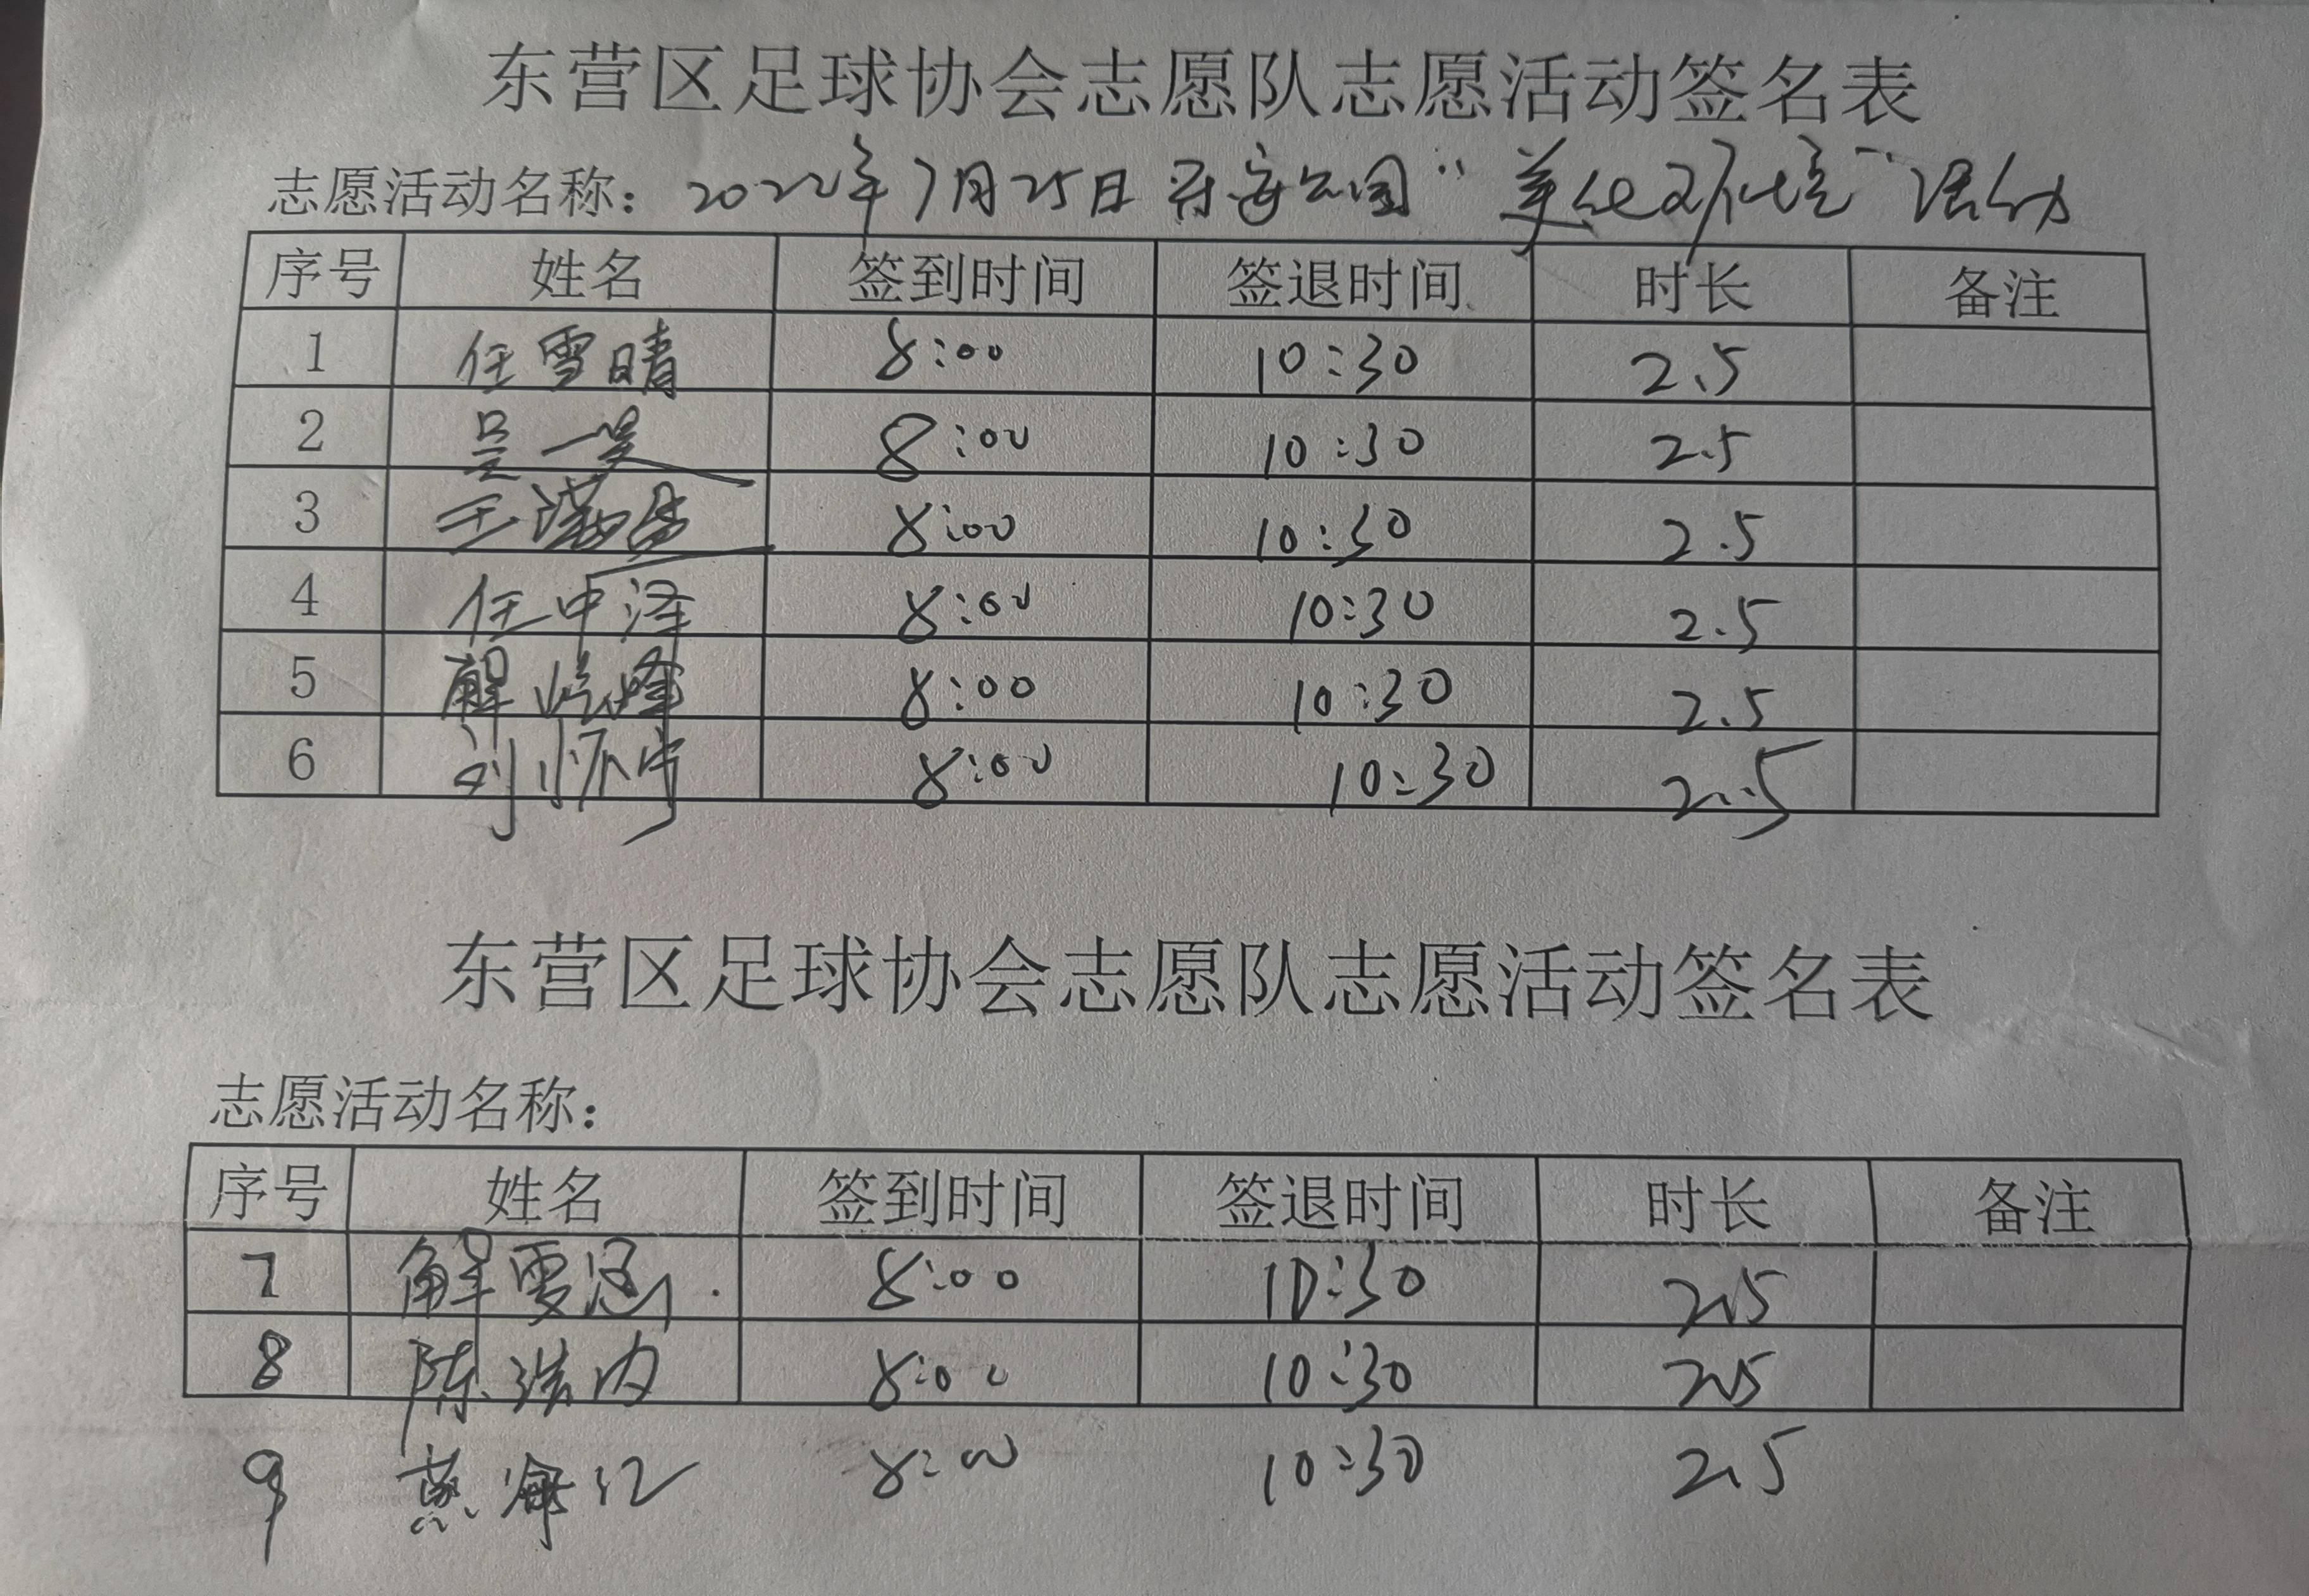 东营区足球协会志愿队志愿活动签名表
志愿活动名称：2022年7月25日 安公园“美化环境”活动
序号 姓名 签到时间 签退时间 时长 备注
1 任雪晴 8:00 10:30 2.5
2 吴一昊 8:00 10:30 2.5
3 8:00 10:30 2.5
4 任中泽 8:00 10:30 2.5
5 8:00 10:30 2.5
6 刘怀宇 8:00 10:30 2.5
东营区足球协会志愿队志愿活动签名表
志愿活动名称：
序号 姓名 签到时间 签退时间 时长 备注
7 8:00 10:30 2.5
8 8:00 10:30 2.5
9 8:00 10:30 2.5